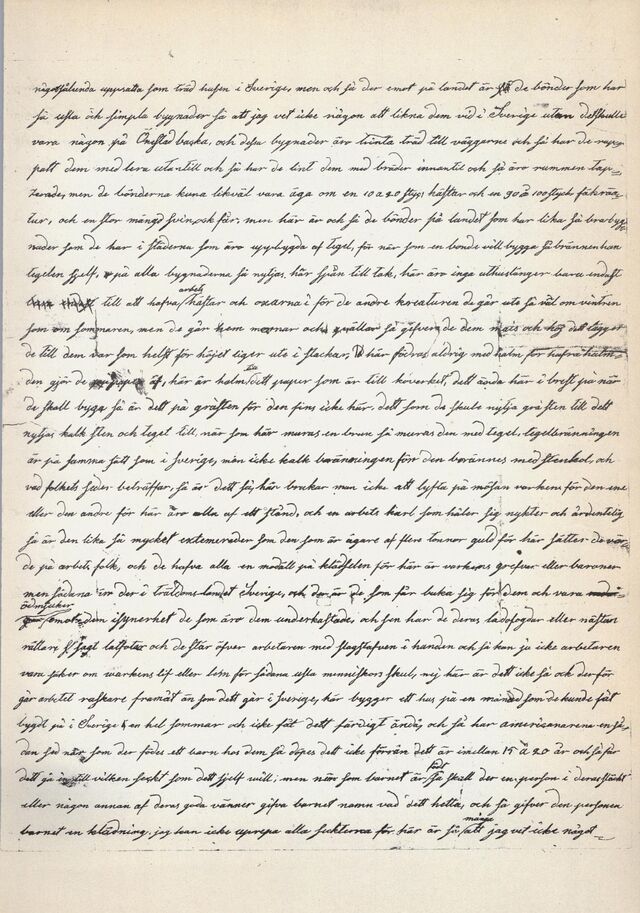 någotsålunda uppsatta som träd husen i Sverige, men och så der emot på landet är så de bönder som har
så usla och simpla byggnader så att jag vet icke någon att likna dem vid i Sverige utan det skulle
vara någon på Önestad backa, och desa bygnader äro tunna träd till väggarne och så har de rap-
patt dem med lera utantill och så har de tint dem med bräder innantil och så äro rummen tap-
zerade, men de bönderna kuna likväl vara äga om en 10 a 20 styg hästar och en 90 a 100 styck fäkrea-
tur, och en stor mängd svin, och får, men här är och så de bönder på landet som har lika så bra byg-
nader som de har i städerna som äro uppbygda af tegel, för när som en bonde vill bygga så bränner han
tegelen sjelf, på alla bygnaderna så nytjas här spån till tak, här äro inga uthuslänger bara endast
till att hafva arbets hästar och oxarna i för de andre kreaturen de går ute så väl om vintren
som om sommaren, men de går hem mornar och qvällar så gifver de dem mais och höj det tager
de till dem var som helst för höjet liger ute i stackar, här fodras aldrig med halm för hafra halm
den gjör de papper af, här är halm dett paper som är till köverket, dett ända här i brest på när
de skall byga så är dett på gråsten för den fins icke här, dett som de skule nytja gråsten till dett
nytjas kalk sten och tegel till, när som här muras en brun så muras den med tegel, tegelbränningen
är på samma sätt som i Sverige, men icke kalk bränningen för den brännes med stenkol, och
vad folkets seder beträffar, så är dett så, här brukar man icke att lyfta på mössan varken för den ene
eller den andre för här äro alla af ett stånd, och en arbets karl som håler sig nykter och ordentelig
så är den lika så mycket extemerader som den som är ägare af flere tonnor guld för här sätter de vär-
de på arbets folk, och de hafva alla en modäll på klädselen för här är varken grefvar eller baroner
men sådana är der i träldoms landet Sverige, och der är de som får buka sig för dem och vara
ödmjuker emot dem isynerhet de som äro dem underkastade, och sen har de deras ladofogdar eller nästan
rättare sagt och de står öfver arbetaren med slagstafven i handen och så kan ju icke arbetaren
vara säker om varken lif eller lem för sådana usla menniskors skul, nej här är dett icke så och derför
går arbetet raskare framåt än som dett går i Sverige, här bygger ett hus på en månad som de kunde fåt
bygdt på i Sverige en hel sommar och icke fåt dett färdigt ändå, och så har americanarena en så-
dan sed när som der födes ett barn hos dem så döpes dett icke förrän dett är imellan 15 a 20 år och så får
dett gå in till vilken seckt som dett sjelf will; men när som barnet är födt så skall der en person i deras slächt
eller någon annan af deras goda vänner gifva barnet namn vad dett hetta, och så gifver den personen
barnet en klädning, jag kan icke uprepa alla sekterna för här är så många att jag vet icke något-